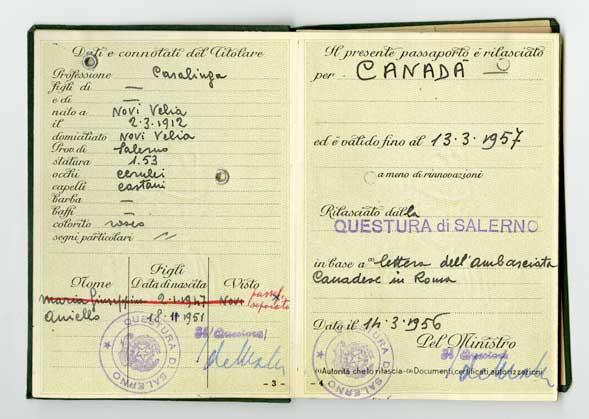 Dati e connotati del Titolare
Professione Casalinga
figli di —
e di —
nato a Novi Velia
il 2.3.1912
domiciliato Novi Velia
Prov. di Salerno
statura 1.53
occhi cerulei
capelli castani
barba —
baffi —
colorito roseo
segni particolari //
Figli
Nome Data di nascita Visto
Maria Giuseppina 2.1.1947 Novi
Aniello 18.11.1951
QUESTURA DI SALERNO
Il Questore
- 3 -
Il presente passaporto è rilasciato
per CANADÀ —
ed è valido fino al 13.3.1957
a meno di rinnovazioni
Rilasciato dalla
QUESTURA di SALERNO
in base a (2) lettera dell'Ambasciata
Canadese in Roma
Data il 14.3.1956
Pel Ministro
Il Questore
(1) Autorità che lo rilascia - (2) Documenti, certificati, autorizzazioni
- 4 -